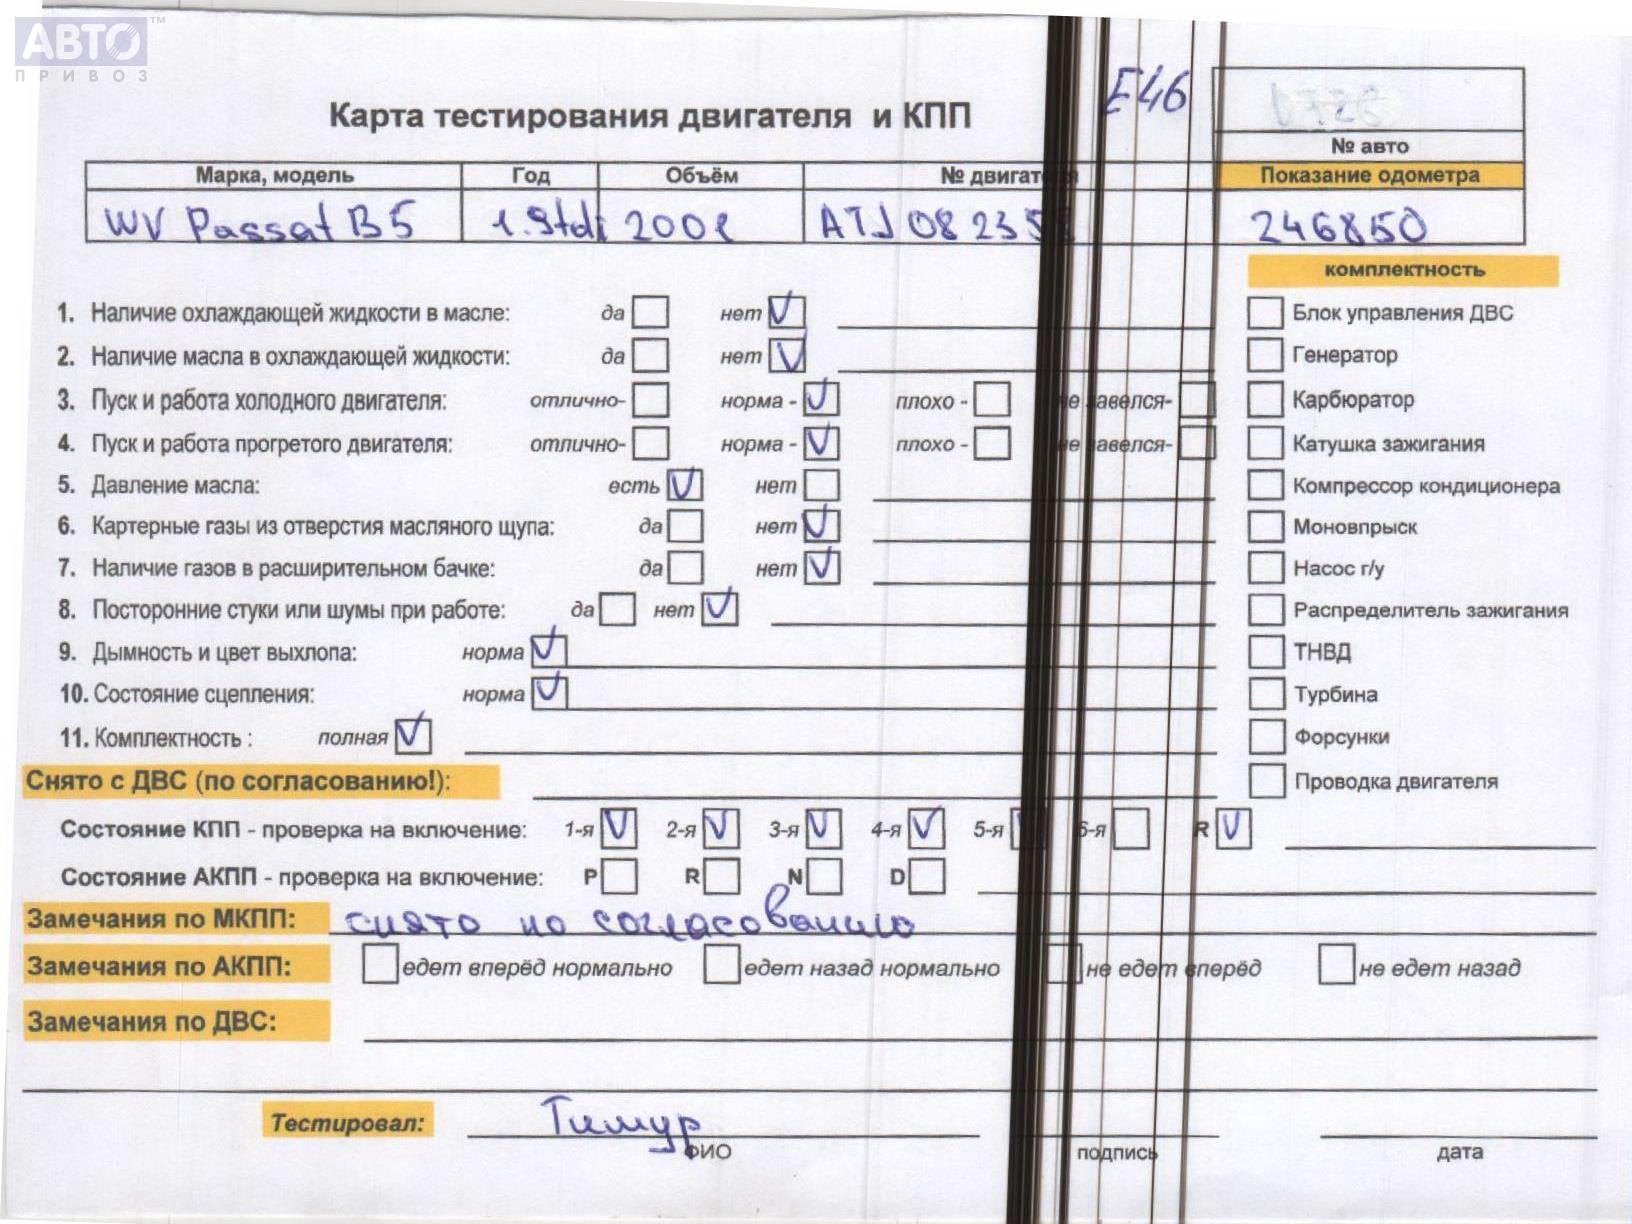 АВТО™
ПРИВОЗ
E46
Карта тестирования двигателя и КПП
№ авто
Марка, модель Год Объём № двигателя Показание одометра
WV Passat B5 1.9tdi 2001 ATJ 08235 246850
комплектность
1. Наличие охлаждающей жидкости в масле: да нет V Блок управления ДВС
2. Наличие масла в охлаждающей жидкости: да нет V Генератор
3. Пуск и работа холодного двигателя: отлично- норма - V плохо - не завелся- Карбюратор
4. Пуск и работа прогретого двигателя: отлично- норма - V плохо - не завелся- Катушка зажигания
5. Давление масла: есть V нет Компрессор кондиционера
6. Картерные газы из отверстия масляного щупа: да нет V Моновпрыск
7. Наличие газов в расширительном бачке: да нет V Насос г/у
8. Посторонние стуки или шумы при работе: да нет V Распределитель зажигания
9. Дымность и цвет выхлопа: норма V ТНВД
10. Состояние сцепления: норма V Турбина
11. Комплектность : полная V Форсунки
Снято с ДВС (по согласованию!): Проводка двигателя
Состояние КПП - проверка на включение: 1-я V 2-я V 3-я V 4-я V 5-я 6-я R V
Состояние АКПП - проверка на включение: P R N D
Замечания по МКПП: снято по согласованию
Замечания по АКПП: едет вперёд нормально едет назад нормально не едет вперёд не едет назад
Замечания по ДВС:
Тестировал: Тимур
ФИО подпись дата